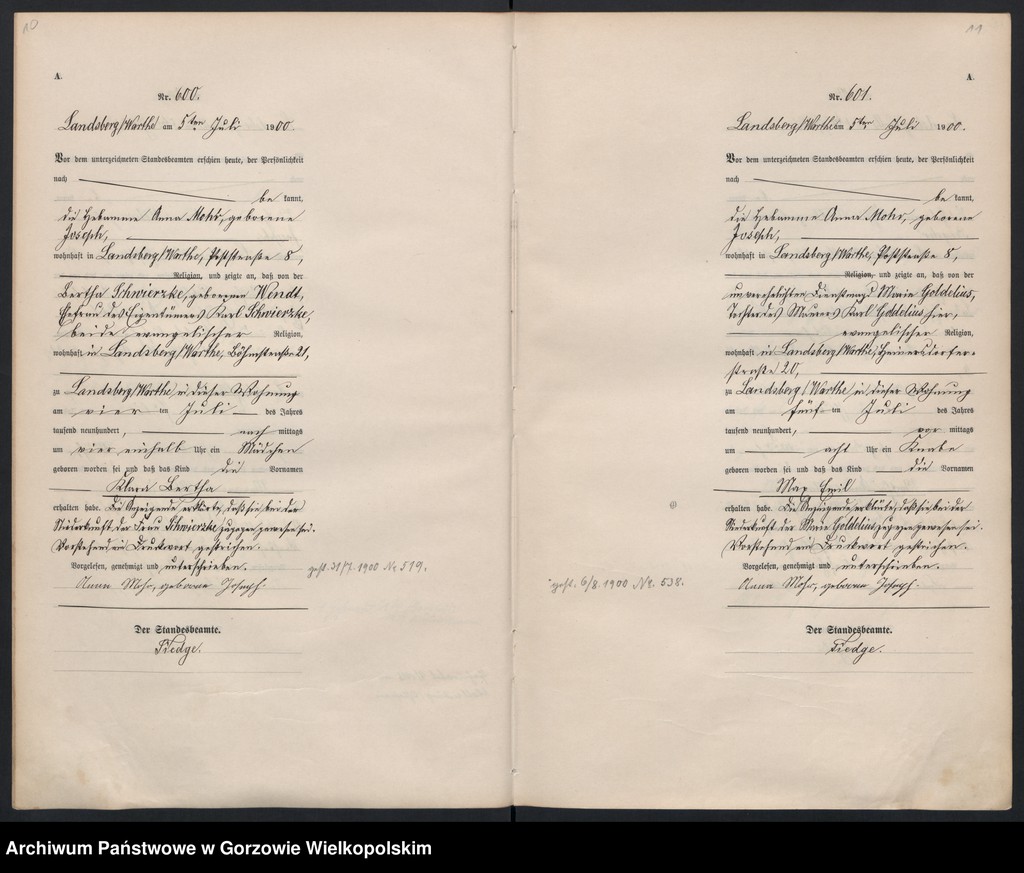 10
A.
Nr. 600.
Landsberg/Warthe am 5ten Juli 1900.
Vor dem unterzeichneten Standesbeamten erschien heute, der Persönlichkeit
nach
be kannt,
die Hebamme Anna Mohr, geborene
Joseph,
wohnhaft in Landsberg/Warthe, Poststraße 8,
Religion, und zeigte an, daß von der
Bertha Schwierzke, geborenen Wendt,
Ehefrau des Eigentümers Karl Schwierzke,
beide evangelischer Religion,
wohnhaft in Landsberg/Warthe, Böhmstraße 21,
zu Landsberg/Warthe in dieser Wohnung
am vier ten Juli des Jahres
tausend neunhundert, nach mittags
um vier einhalb Uhr ein Mädchen
geboren worden sei und daß das Kind die Vornamen
Klara Bertha
erhalten habe. Die Anzeigende erklärte, daß sie bei der
Niederkunft der Frau Schwierzke zugegen gewesen sei.
Vorstehend ein Druckwort gestrichen.
Vorgelesen, genehmigt und unterschrieben.
Anna Mohr, geborene Joseph.
Der Standesbeamte.
Tiedge.
gest. 31/7. 1900 Nr. 519.
11
A.
Nr. 601.
Landsberg/Warthe am 5ten Juli 1900.
Vor dem unterzeichneten Standesbeamten erschien heute, der Persönlichkeit
nach
be kannt,
die Hebamme Anna Mohr, geborene
Joseph,
wohnhaft in Landsberg/Warthe, Poststraße 8,
Religion, und zeigte an, daß von der
unverehelichten Dienstmagd Marie Goldelius,
Tochter des Maurers Karl Goldelius hier,
evangelischer Religion,
wohnhaft in Landsberg/Warthe, Heinersdorfer-
straße 20,
zu Landsberg/Warthe in dieser Wohnung
am fünf ten Juli des Jahres
tausend neunhundert, vor mittags
um acht Uhr ein Knabe
geboren worden sei und daß das Kind die Vornamen
Max Emil
erhalten habe. Die Anzeigende erklärte, daß sie bei der
Niederkunft der Marie Goldelius zugegen gewesen sei.
Vorstehend ein Druckwort gestrichen.
Vorgelesen, genehmigt und unterschrieben.
Anna Mohr, geborene Joseph.
Der Standesbeamte.
Tiedge.
gest. 6/8. 1900 Nr. 538.
Archiwum Państwowe w Gorzowie Wielkopolskim